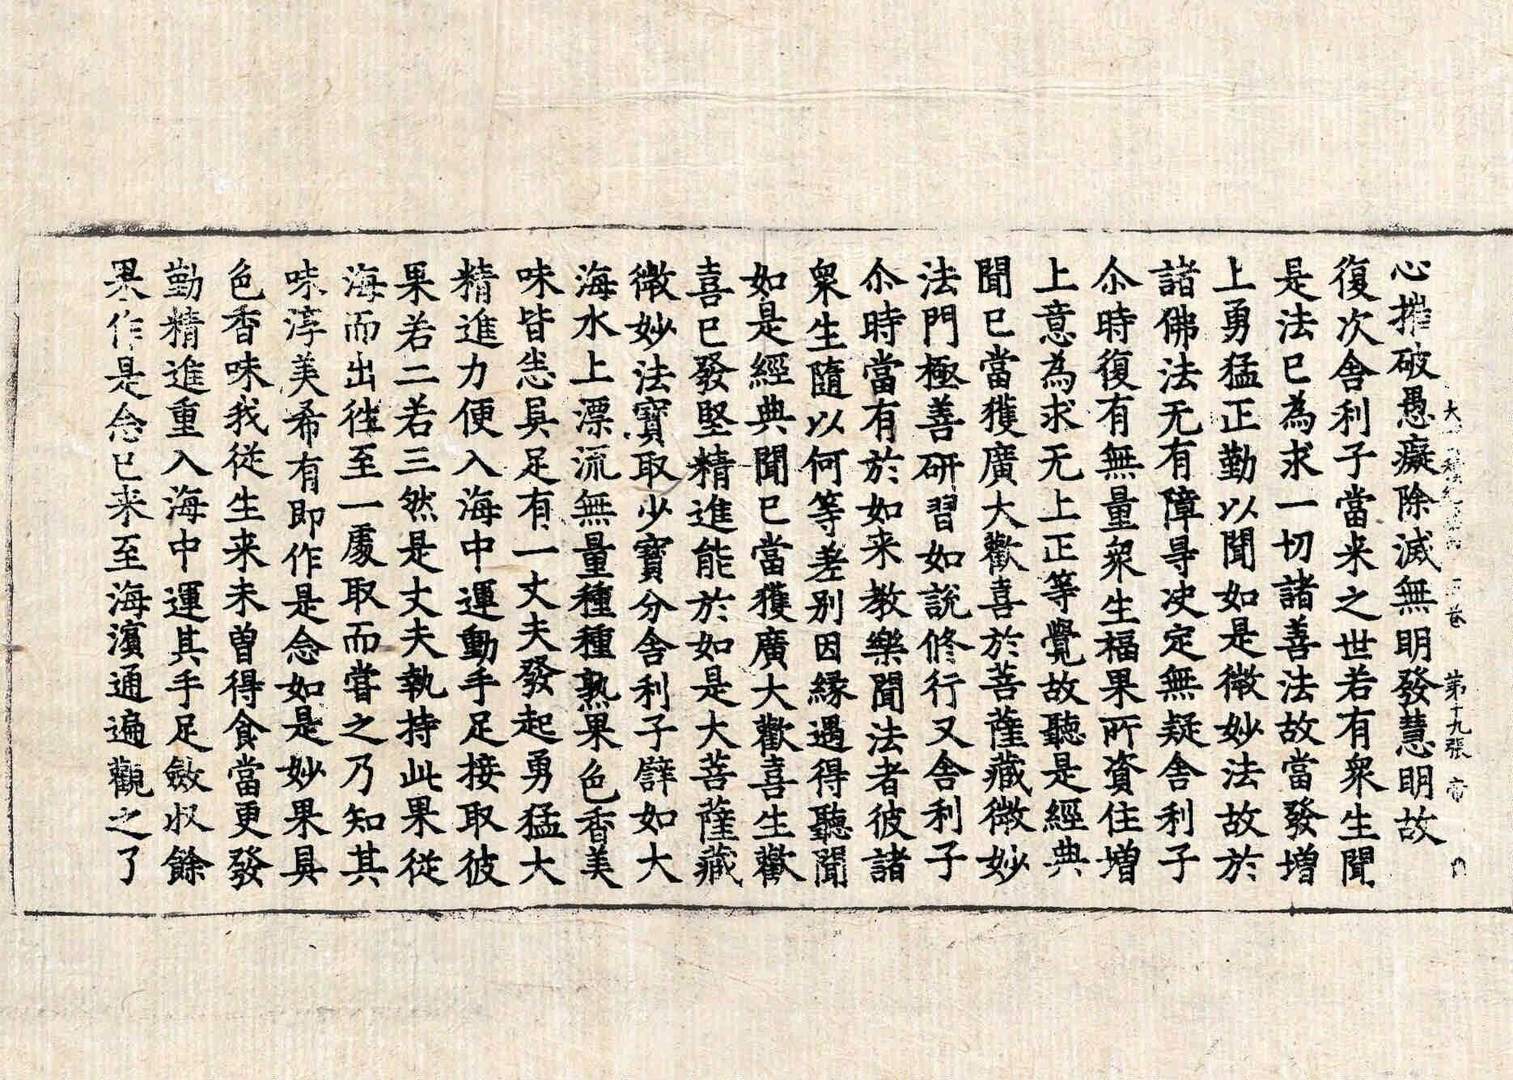 心摧破愚癡除滅無明發慧明故
大積經 卷 第十九張 帝
復次舍利子當来之世若有衆生聞
是法已為求一切諸善法故當發増
上勇猛正勤以聞如是微妙法故於
諸佛法无有障㝵決定無疑舍利子
尒時復有無量衆生福果所資住増
上意為求无上正等覺故聽是經典
聞已當獲廣大歡喜於菩薩藏微妙
法門極善研習如說修行又舍利子
尒時當有於如来教樂聞法者彼諸
衆生隨以何等差別因緣遇得聽聞
如是經典聞已當獲廣大歡喜生歡
喜已發堅精進能於如是大菩薩藏
微妙法寶取少寶分舍利子譬如大
海水上漂流無量種種熟果色香美
味皆悉具足有一丈夫發起勇猛大
精進力便入海中運動手足接取彼
果若二若三然是丈夫執持此果從
海而出往至一處取而甞之乃知其
味淳美希有即作是念如是妙果具
色香味我從生来未曽得食當更發
勤精進重入海中運其手足斂収餘
果作是念已来至海濱通遍觀之了